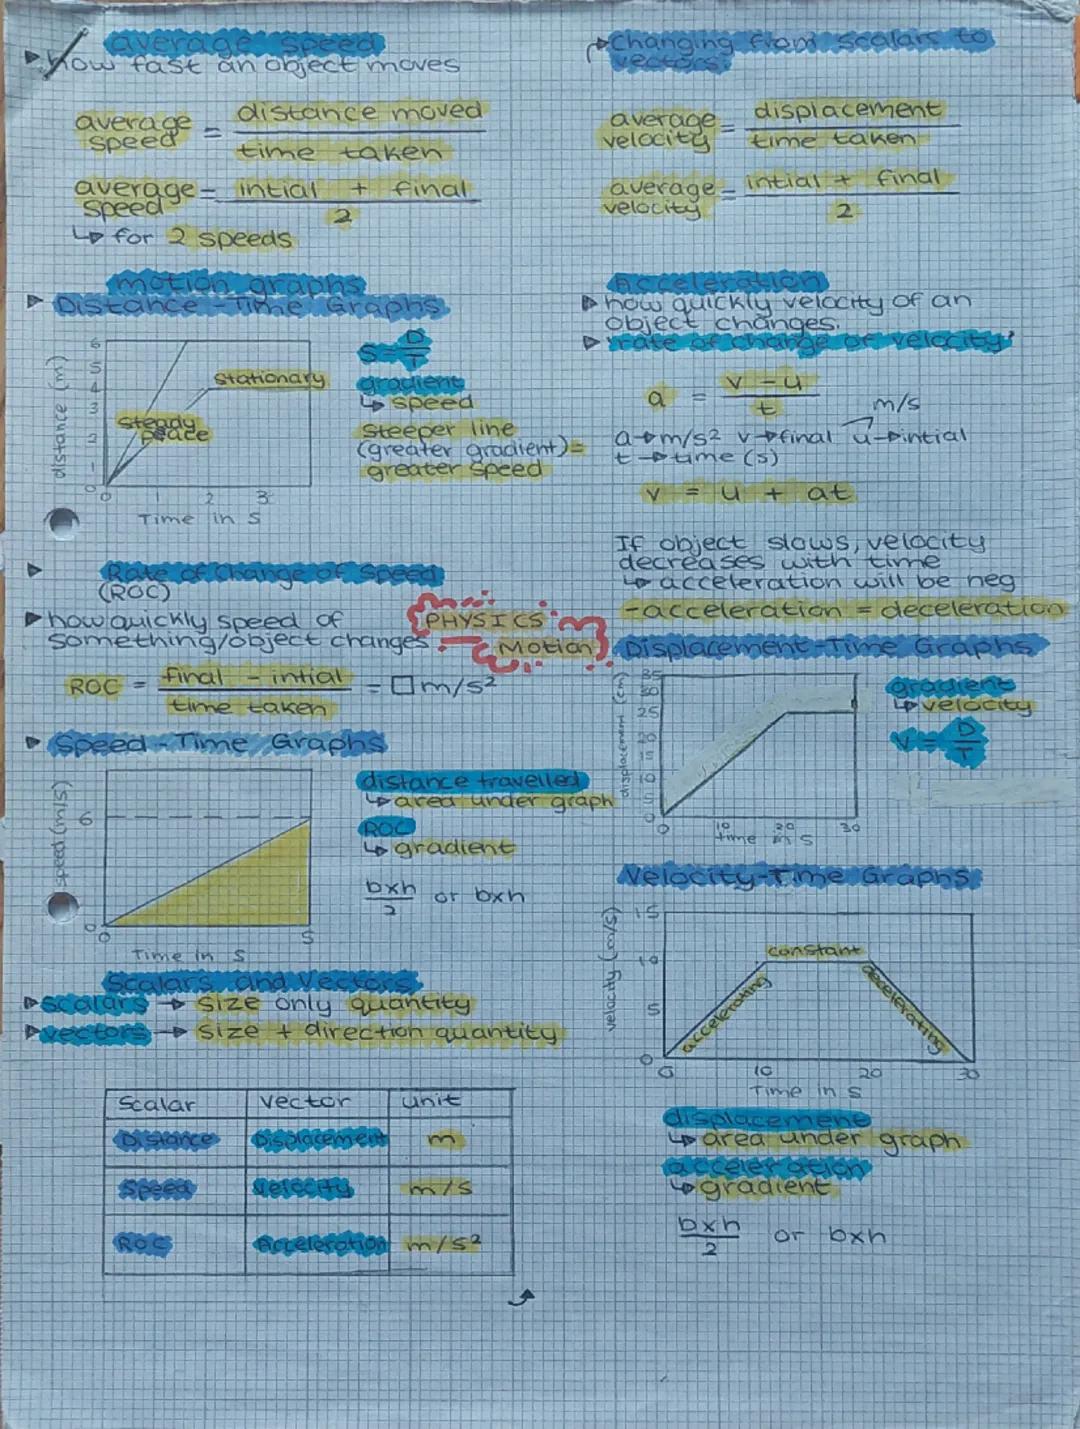 average speed
▶ How fast an object moves
average speed = distance moved / time taken
average speed = intial + final / 2
↳ for 2 speeds
motion graphs
▶ Distance-Time Graphs
distance (m)
6
5
4
3
2
1
0
stationary
steady
peace
0 1 2 3
Time in s
S = D/T
gradient
↳ speed
steeper line
(greater gradient)=
greater speed
▶ Rate of Change of Speed
(ROC)
▶ how quickly speed of
something/object changes.
ROC = final - intial / time taken = □ m/s²
PHYSICS
Motion
▶ Speed-Time Graphs
speed (m/s)
6
0
0 5
Time in s
distance travelled
↳ area under graph
ROC
↳ gradient
bxh/2 or bxh
Scalars and Vectors
▶ scalars → size only quantity
▶ vectors → size + direction quantity
Scalar Vector unit
Distance Displacement m
Speed Velocity m/s
ROC Acceleration m/s²
▶ Changing from scalars to
vectors:
average velocity = displacement / time taken
average velocity = intial + final / 2
Acceleration
▶ how quickly velocity of an
object changes.
▶ 'rate of change of velocity'
a = v - u / t
m/s
a→m/s² v→final u→intial
t→time (s)
v = u + at
If object slows, velocity
decreases with time
↳ acceleration will be neg
-acceleration = deceleration
Displacement-Time Graphs
displacement (cm)
35
30
25
20
15
10
5
0
0 10 20 30
time in s
gradient
↳ velocity
V = D/T
Velocity-Time Graphs
velocity (m/s)
15
10
5
0
constant
accelerating
decelerating
0 10 20 30
Time in s
displacement
↳ area under graph
acceleration
↳ gradient
bxh/2 or bxh